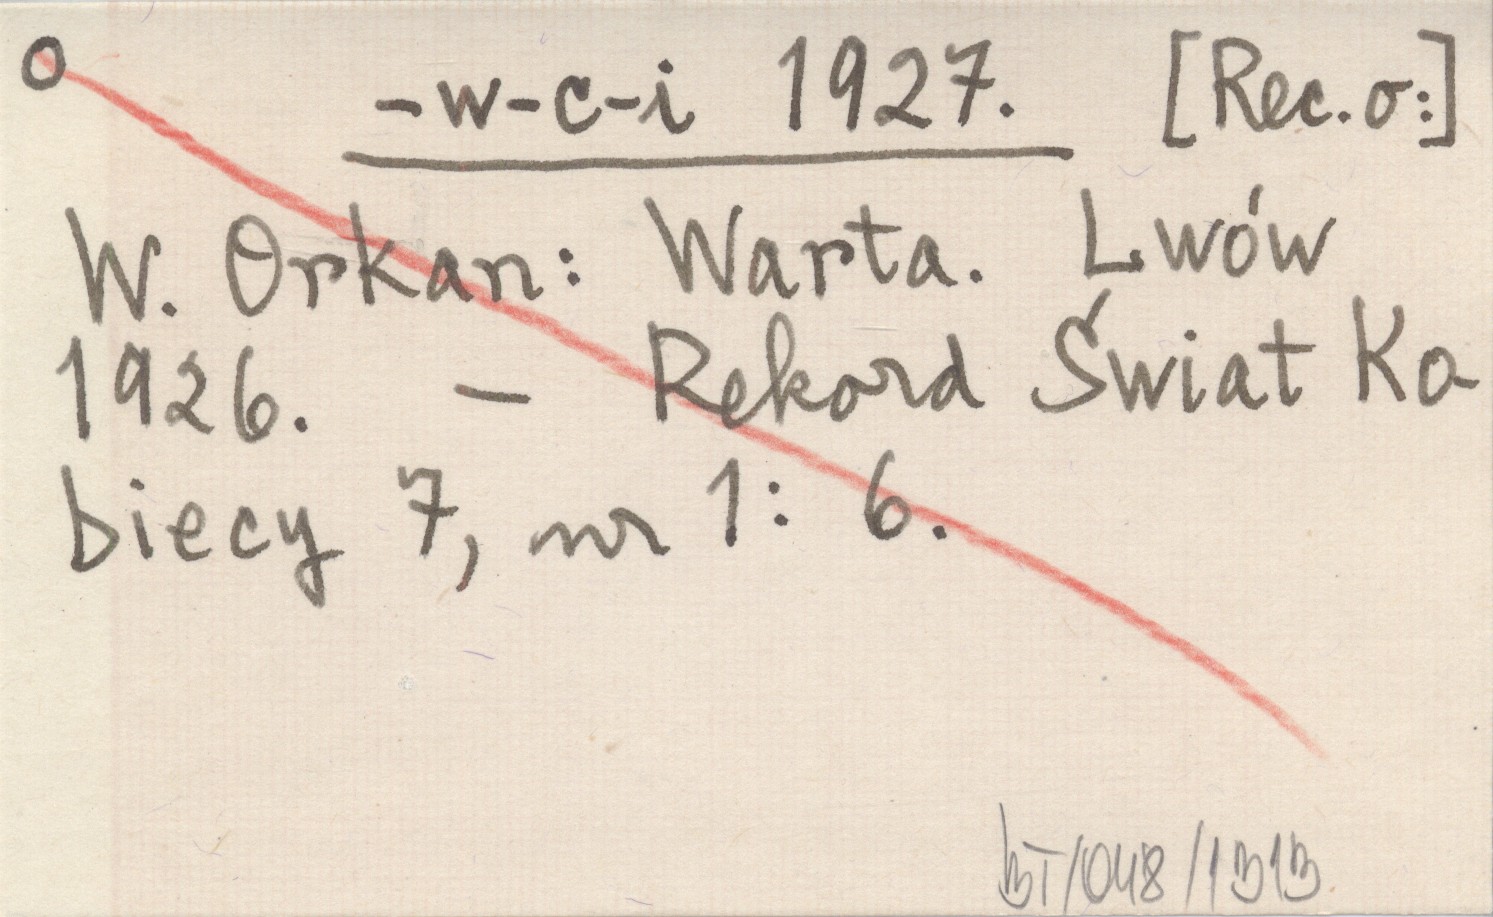 o
-w-c-i 1927. [Rec. o:]
W. Orkan: Warta. Lwów
1926. – Rekord Świat Ko-
biecy 7, nr 1: 6.
BT/048/1313